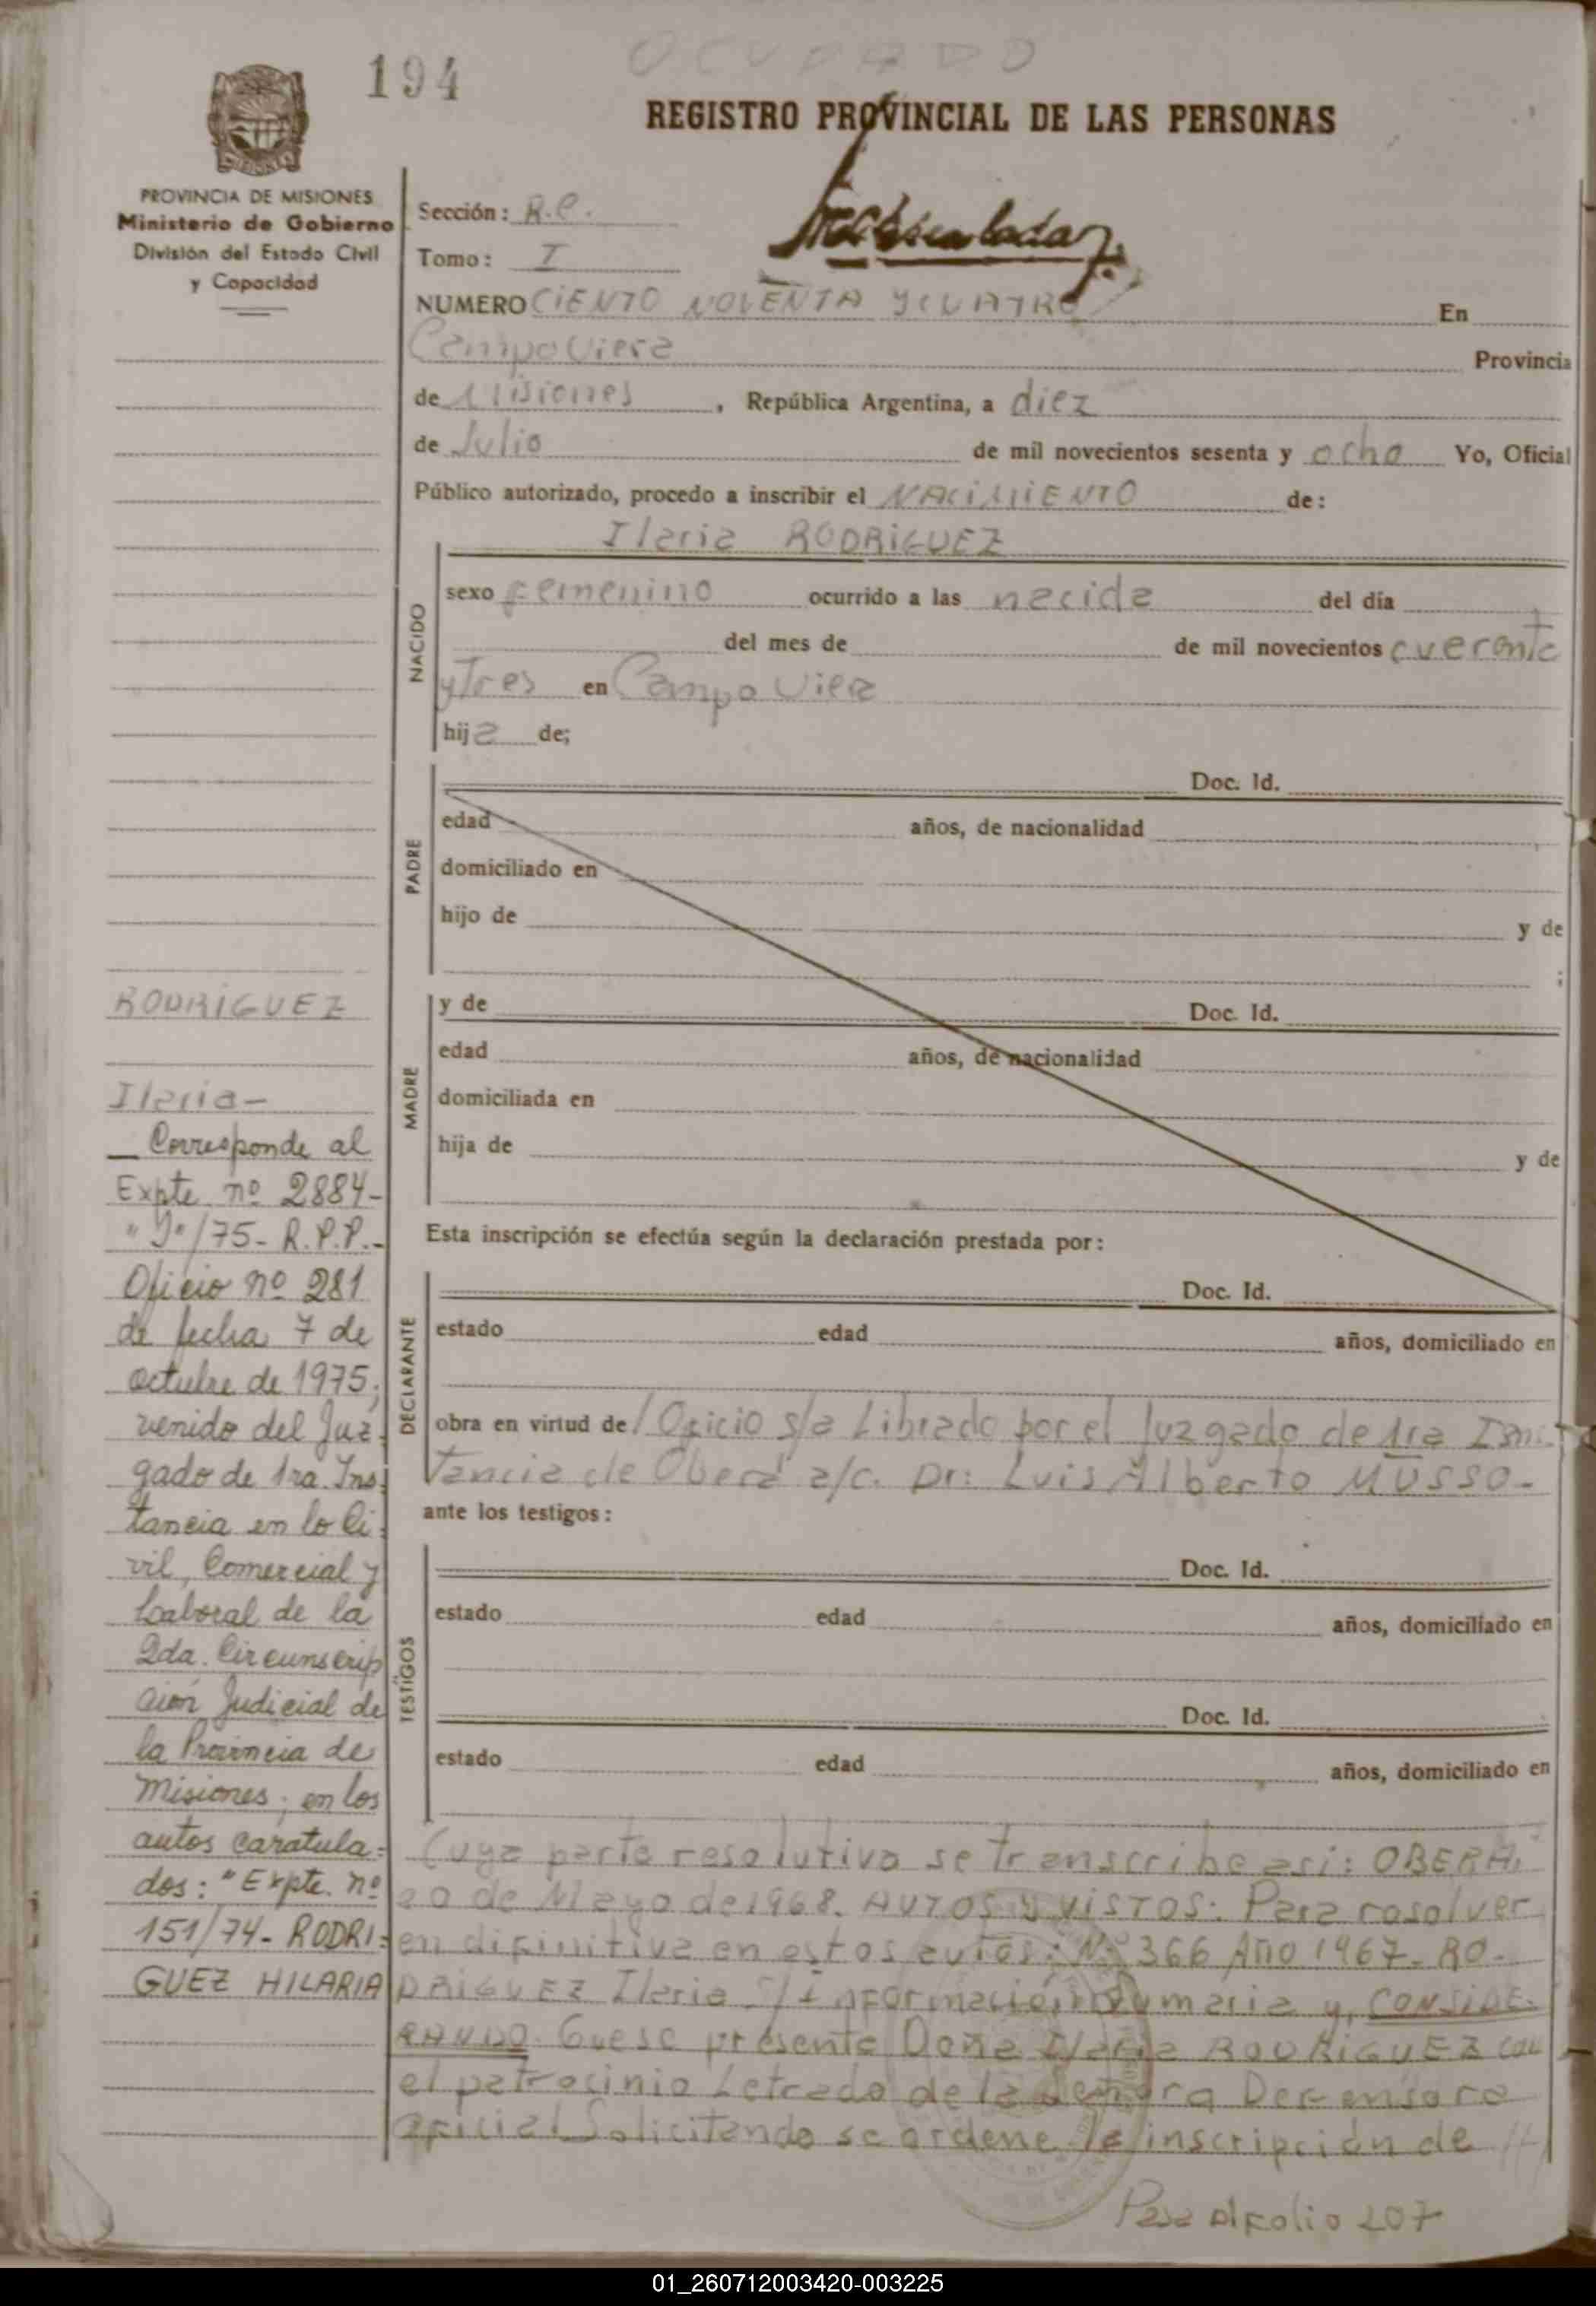 OCUPADO
194
REGISTRO PROVINCIAL DE LAS PERSONAS
PROVINCIA DE MISIONES
Ministerio de Gobierno
División del Estado Civil
y Capacidad
Sección: R.C.
Tomo: I
NUMERO CIENTO NOVENTA Y CUATRO En
Campo Viera Provincia
de Misiones, República Argentina, a diez
de Julio de mil novecientos sesenta y ocho Yo, Oficial
Público autorizado, procedo a inscribir el NACIMIENTO de:
Ilaria RODRIGUEZ
NACIDO
sexo femenino ocurrido a las nacida del día
del mes de de mil novecientos cuarenta
y Tres en Campo Viera
hija de;
PADRE
Doc. Id.
edad años, de nacionalidad
domiciliado en
hijo de y de
;
MADRE
y de Doc. Id.
edad años, de nacionalidad
domiciliada en
hija de y de
Esta inscripción se efectúa según la declaración prestada por:
DECLARANTE
Doc. Id.
estado edad años, domiciliado en
obra en virtud de Oficio s/a Librado por el Juzgado de 1ra Ins-
tancia de Oberá a/c. Dr: Luis Alberto MUSSO-
ante los testigos:
TESTIGOS
Doc. Id.
estado edad años, domiciliado en
Doc. Id.
estado edad años, domiciliado en
Cuya parte resolutiva se transcribe asi: OBERA,
20 de Mayo de 1968. AUTOS y VISTOS: Para resolver
en difinitiva en estos autos: Nº 366 Año 1967- RO-
DRIGUEZ Ilaria S/ información Sumaria y, CONSIDE-
RANDO. Que se presenta Doña Ilaria RODRIGUEZ con
el patrocinio Letrado de la Señora Defensora
oficial Solicitando se ordene la inscripción de //
Pasa al folio 207
RODRIGUEZ
Ilaria-
Corresponde al
Expte. nº 2884-
/75- R.P.P.-
Oficio nº 281
de fecha 7 de
octubre de 1975,
venido del Juz-
gado de 1ra. Ins-
tancia en lo Ci-
vil, Comercial y
Laboral de la
2da. Circunscrip
ción Judicial de
la Provincia de
Misiones; en los
autos caratula-
dos: "Expte. nº
151/74- RODRI-
GUEZ HILARIA
01_260712003420-003225